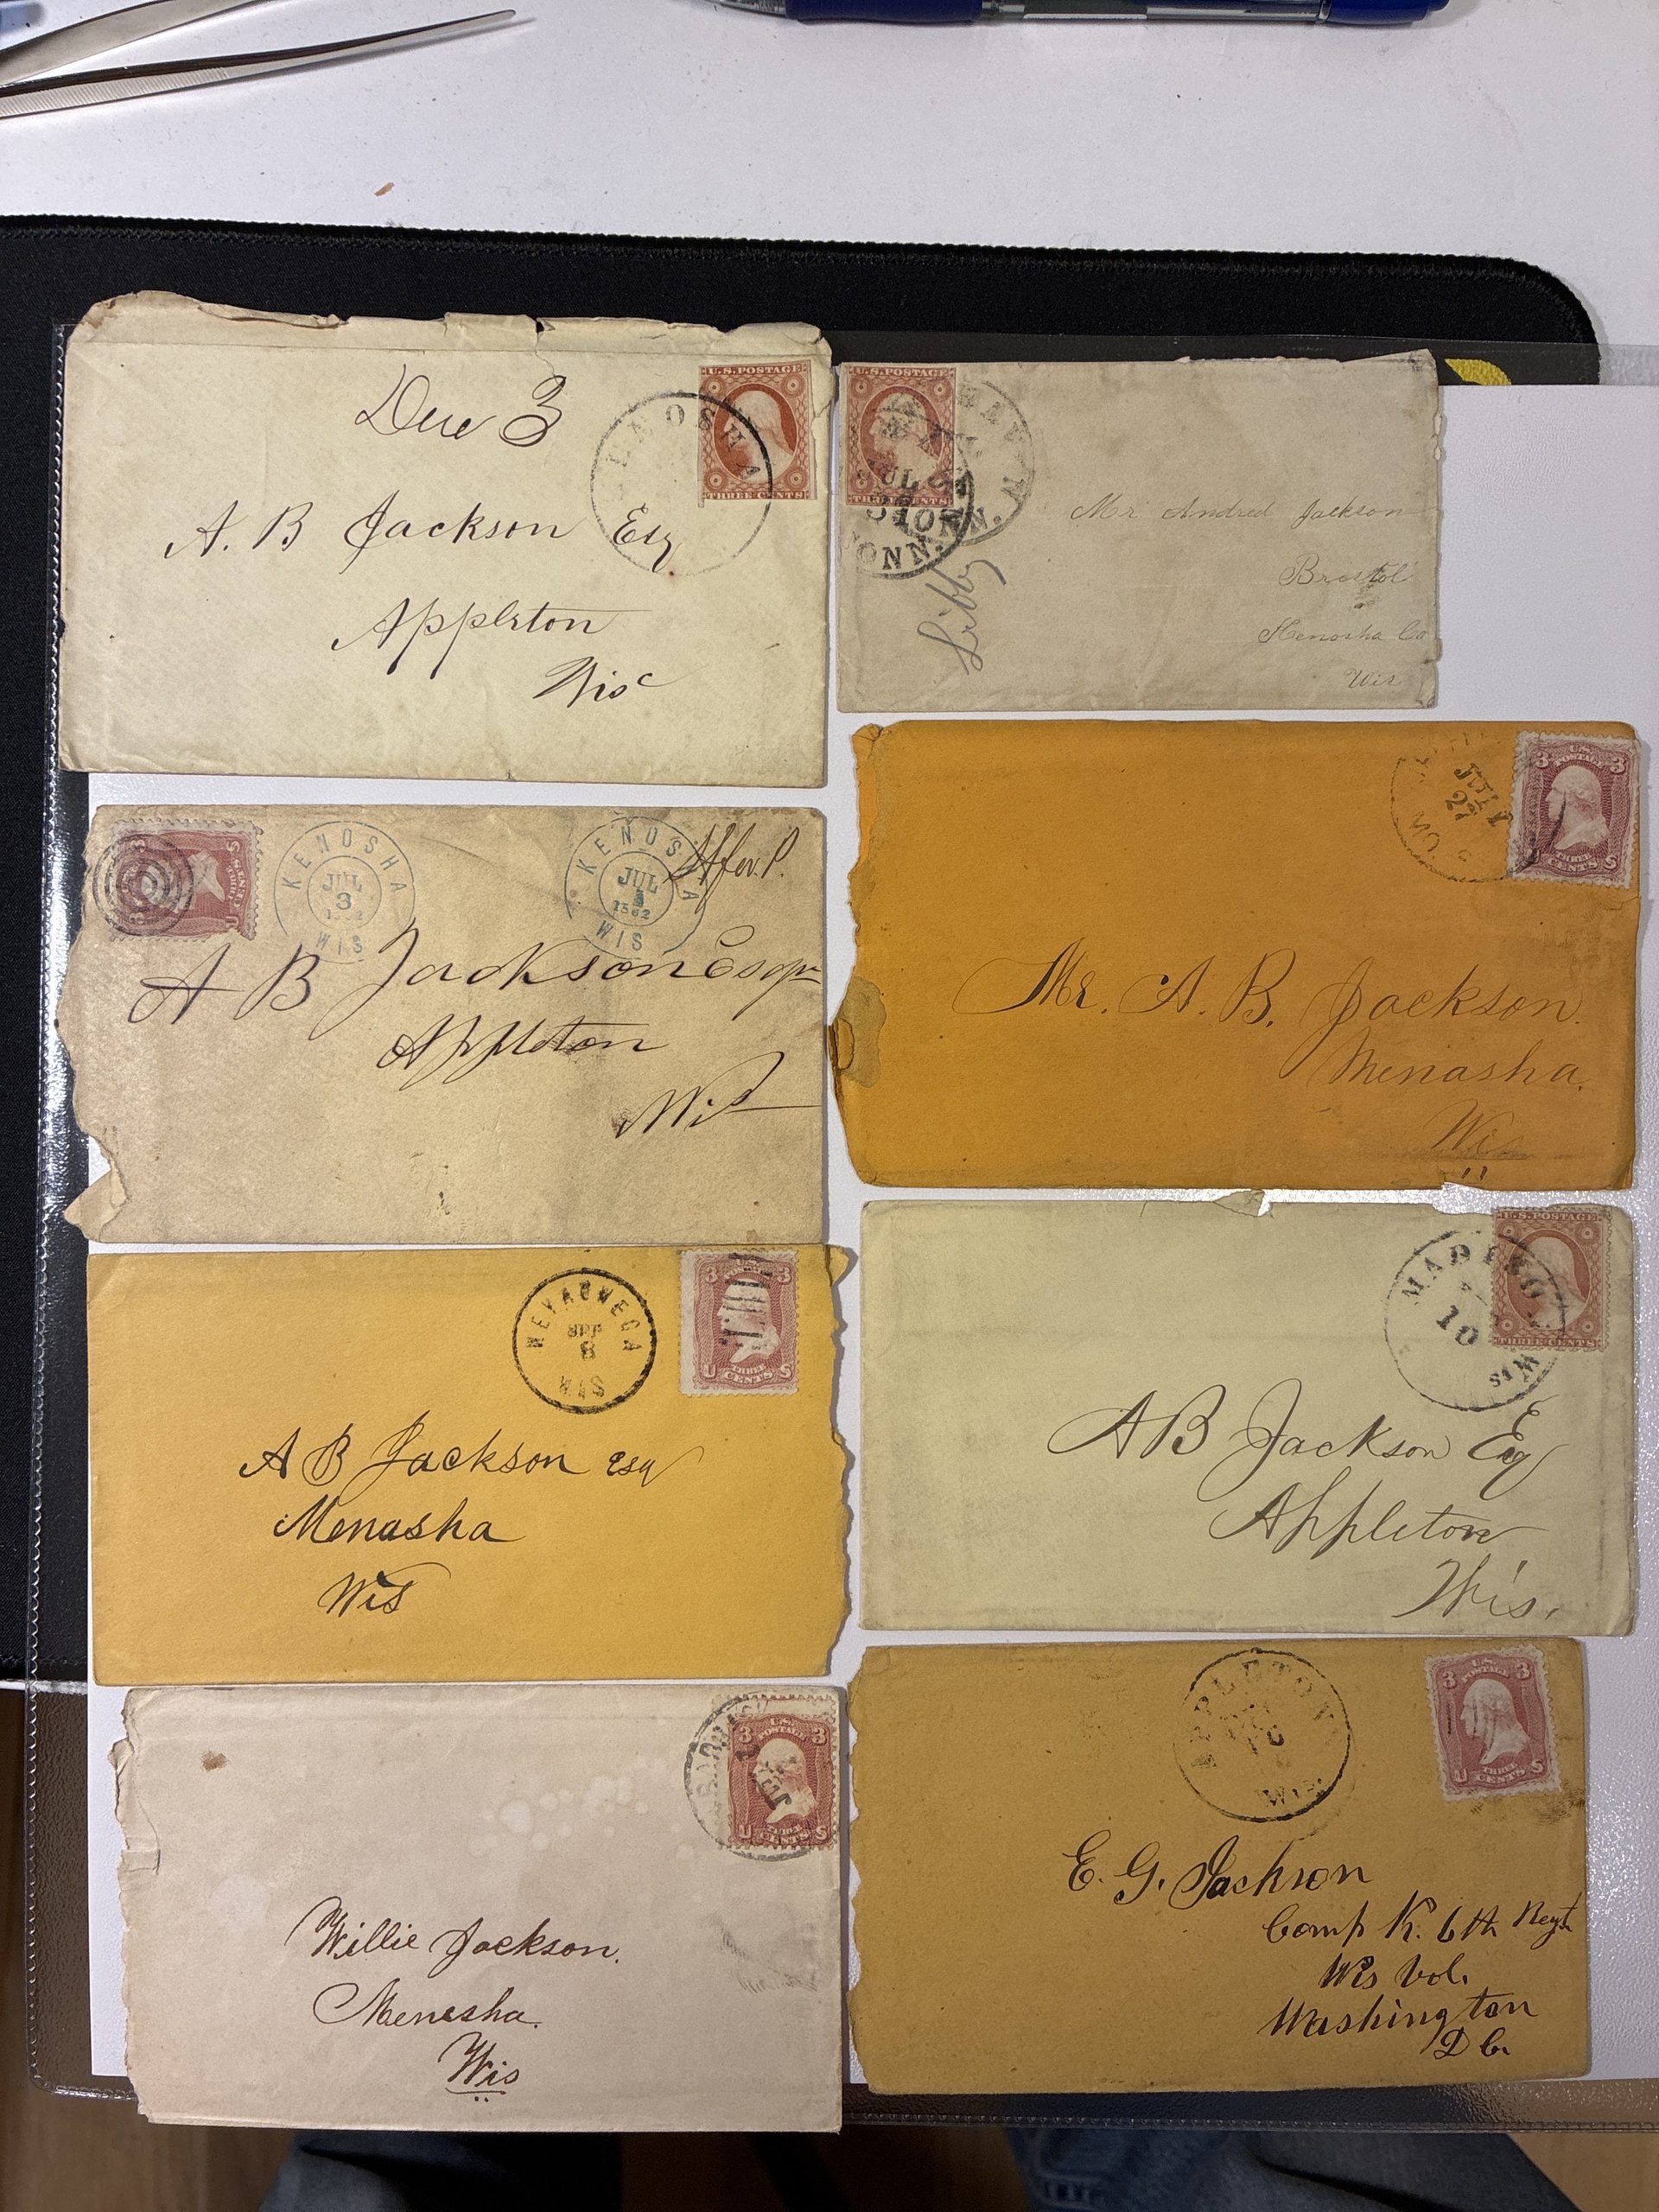 Due 3
U.S. POSTAGE
THREE CENTS
KENOSHA
A. B Jackson Esq
Appleton
Wisc
U.S. POSTAGE
THREE CENTS
HAVEN
JUL
CONN.
CONN.
Libby
Mr Andrew Jackson
Bristol
Kenosha Co
Wis
KENOSHA
JUL
3
1862
WIS
KENOSHA
JUL
1862
WIS
A B Jackson Esqr
Appleton
Wis
3 U.S. 3
POSTAGE
THREE
U CENTS S
JUL
27
MO
Mr. A. B. Jackson.
Menasha.
Wis
WEYAUWEGA
SEP
8
WIS
3 3
THREE
U CENTS S
A B Jackson esq
Menasha
Wis
U.S. POSTAGE
THREE CENTS
MADISON
10
WIS
A B Jackson Esq
Appleton
Wis.
3 U.S. 3
POSTAGE
THREE
U CENTS S
Willie Jackson.
Menasha.
Wis
APPLETON
Wis.
3 U.S. 3
POSTAGE
THREE
U CENTS S
E. G. Jackson
Comp K. 6th Regt
Wis Vol.
Washington
D C.